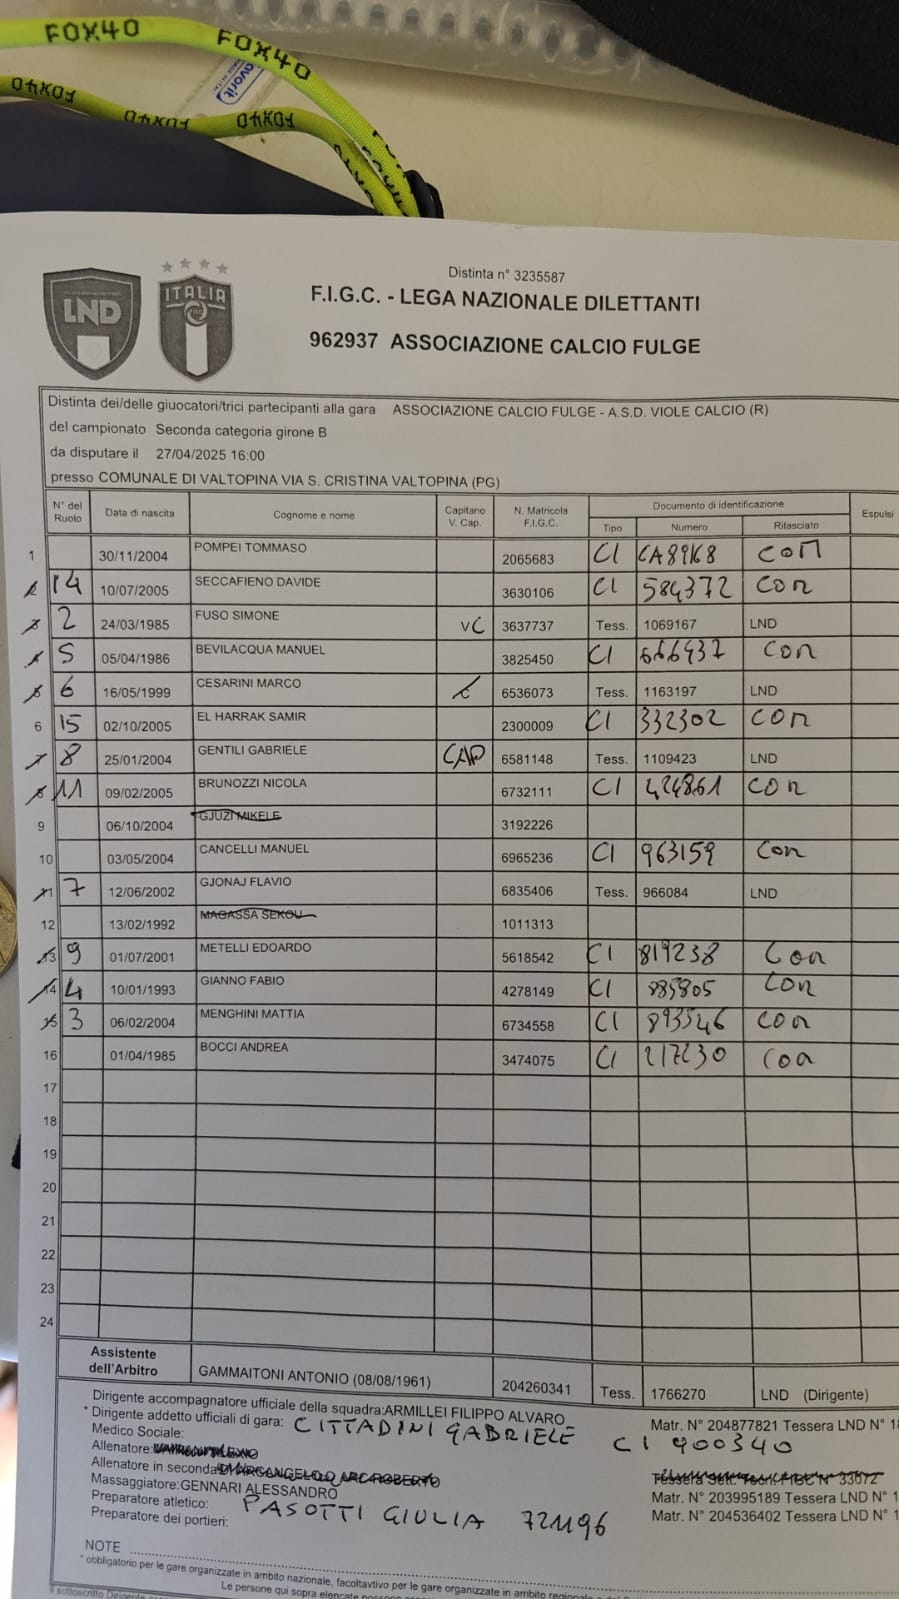 FOX40
FOX40
FOX40
FOX40
FOX40
avorit
LND
ITALIA
Distinta n° 3235587
F.I.G.C. - LEGA NAZIONALE DILETTANTI
962937 ASSOCIAZIONE CALCIO FULGE
Distinta dei/delle giuocatori/trici partecipanti alla gara ASSOCIAZIONE CALCIO FULGE - A.S.D. VIOLE CALCIO (R)
del campionato Seconda categoria girone B
da disputare il 27/04/2025 16:00
presso COMUNALE DI VALTOPINA VIA S. CRISTINA VALTOPINA (PG)
N° del Ruolo Data di nascita Cognome e nome Capitano V. Cap. N. Matricola F.I.G.C. Documento di identificazione Espulsi
Tipo Numero Rilasciato
1 30/11/2004 POMPEI TOMMASO 2065683 CI COM
14 10/07/2005 SECCAFIENO DAVIDE 3630106 CI 584372 COM
2 24/03/1985 FUSO SIMONE VC 3637737 Tess. 1069167 LND
5 05/04/1986 BEVILACQUA MANUEL 3825450 CI 666937 COM
6 16/05/1999 CESARINI MARCO 6536073 Tess. 1163197 LND
6 15 02/10/2005 EL HARRAK SAMIR 2300009 CI 332302 COM
7 8 25/01/2004 GENTILI GABRIELE CAP 6581148 Tess. 1109423 LND
11 09/02/2005 BRUNOZZI NICOLA 6732111 CI 424861 COM
9 06/10/2004 GJUZI MIKELE 3192226
10 03/05/2004 CANCELLI MANUEL 6965236 CI 963159 COM
11 7 12/06/2002 GJONAJ FLAVIO 6835406 Tess. 966084 LND
12 13/02/1992 MAGASSA SEKOU 1011313
13 9 01/07/2001 METELLI EDOARDO 5618542 CI 819238 COM
14 4 10/01/1993 GIANNO FABIO 4278149 CI COM
15 3 06/02/2004 MENGHINI MATTIA 6734558 CI 893546 COM
16 01/04/1985 BOCCI ANDREA 3474075 CI 217230 COM
17
18
19
20
21
22
23
24
Assistente dell'Arbitro GAMMAITONI ANTONIO (08/08/1961) 204260341 Tess. 1766270 LND (Dirigente)
Dirigente accompagnatore ufficiale della squadra:ARMILLEI FILIPPO ALVARO Matr. N° 204877821 Tessera LND N° 18
* Dirigente addetto ufficiali di gara: CITTADINI GABRIELE CI 900340
Medico Sociale:
Allenatore:
Allenatore in seconda: Tessera Sett. Tecn. FIGC N° 33072
Massaggiatore:GENNARI ALESSANDRO Matr. N° 203995189 Tessera LND N° 1
Preparatore atletico: PASOTTI GIULIA 721196 Matr. N° 204536402 Tessera LND N°
Preparatore dei portieri:
NOTE
* obbligatorio per le gare organizzate in ambito nazionale, facoltavtivo per le gare organizzate in ambito
Le persone qui sopra elencate
Il sottoscritto Dirigente